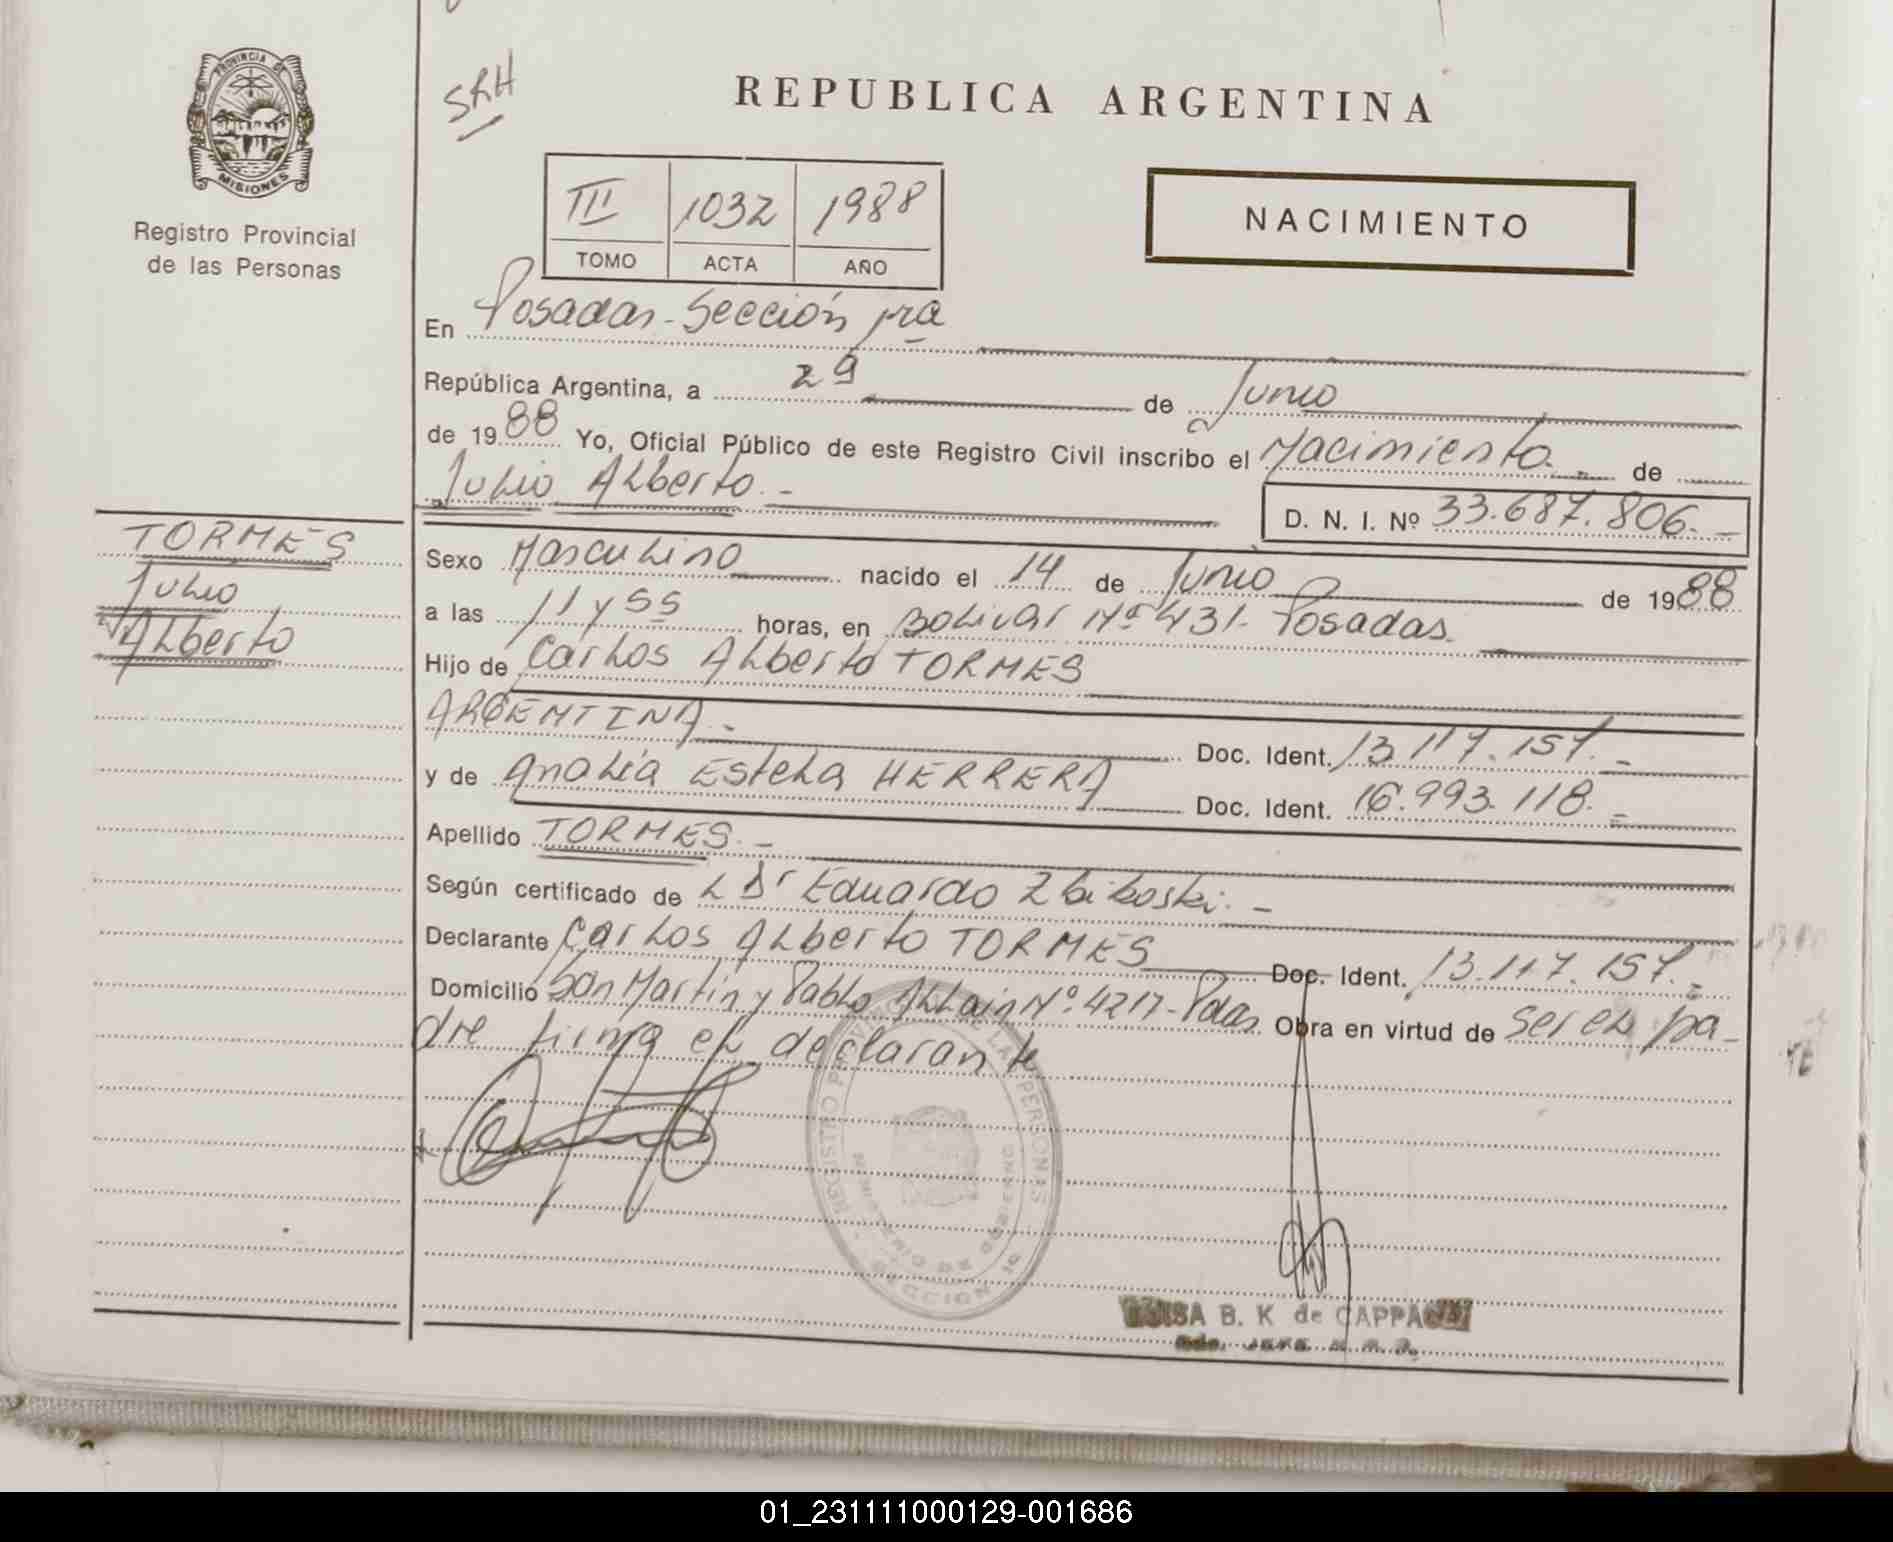 PROVINCIA DE
MISIONES
Registro Provincial
de las Personas
SRH
REPUBLICA ARGENTINA
III 1032 1988
TOMO ACTA AÑO
NACIMIENTO
En Posadas - Sección 1ra
República Argentina, a 29 de Junio
de 1988 Yo, Oficial Público de este Registro Civil inscribo el Nacimiento.- de
Julio Alberto.-
D. N. I. Nº 33.687.806.-
TORMES
Julio
Alberto
Sexo Masculino nacido el 14 de Junio de 1988
a las 11 y 55 horas, en Bolivar Nº 431- Posadas.
Hijo de Carlos Alberto TORMES
ARGENTINA.- Doc. Ident. 13.117.157.-
y de Analía Estela HERRERA Doc. Ident. 16.993.118.=
Apellido TORMES.-
Según certificado de L Dr Eduardo Zbikoski.-
Declarante Carlos Alberto TORMES Doc. Ident. 13.117.157.=
Domicilio San Martin y Pablo Allain Nº. 4217- Pdas. Obra en virtud de ser el pa-
dre firma el declarante
REGISTRO PROVINCIAL DE LAS PERSONAS
MINISTERIO DE GOBIERNO
SECCION 1ª
B. K de CAPPA
01_231111000129-001686